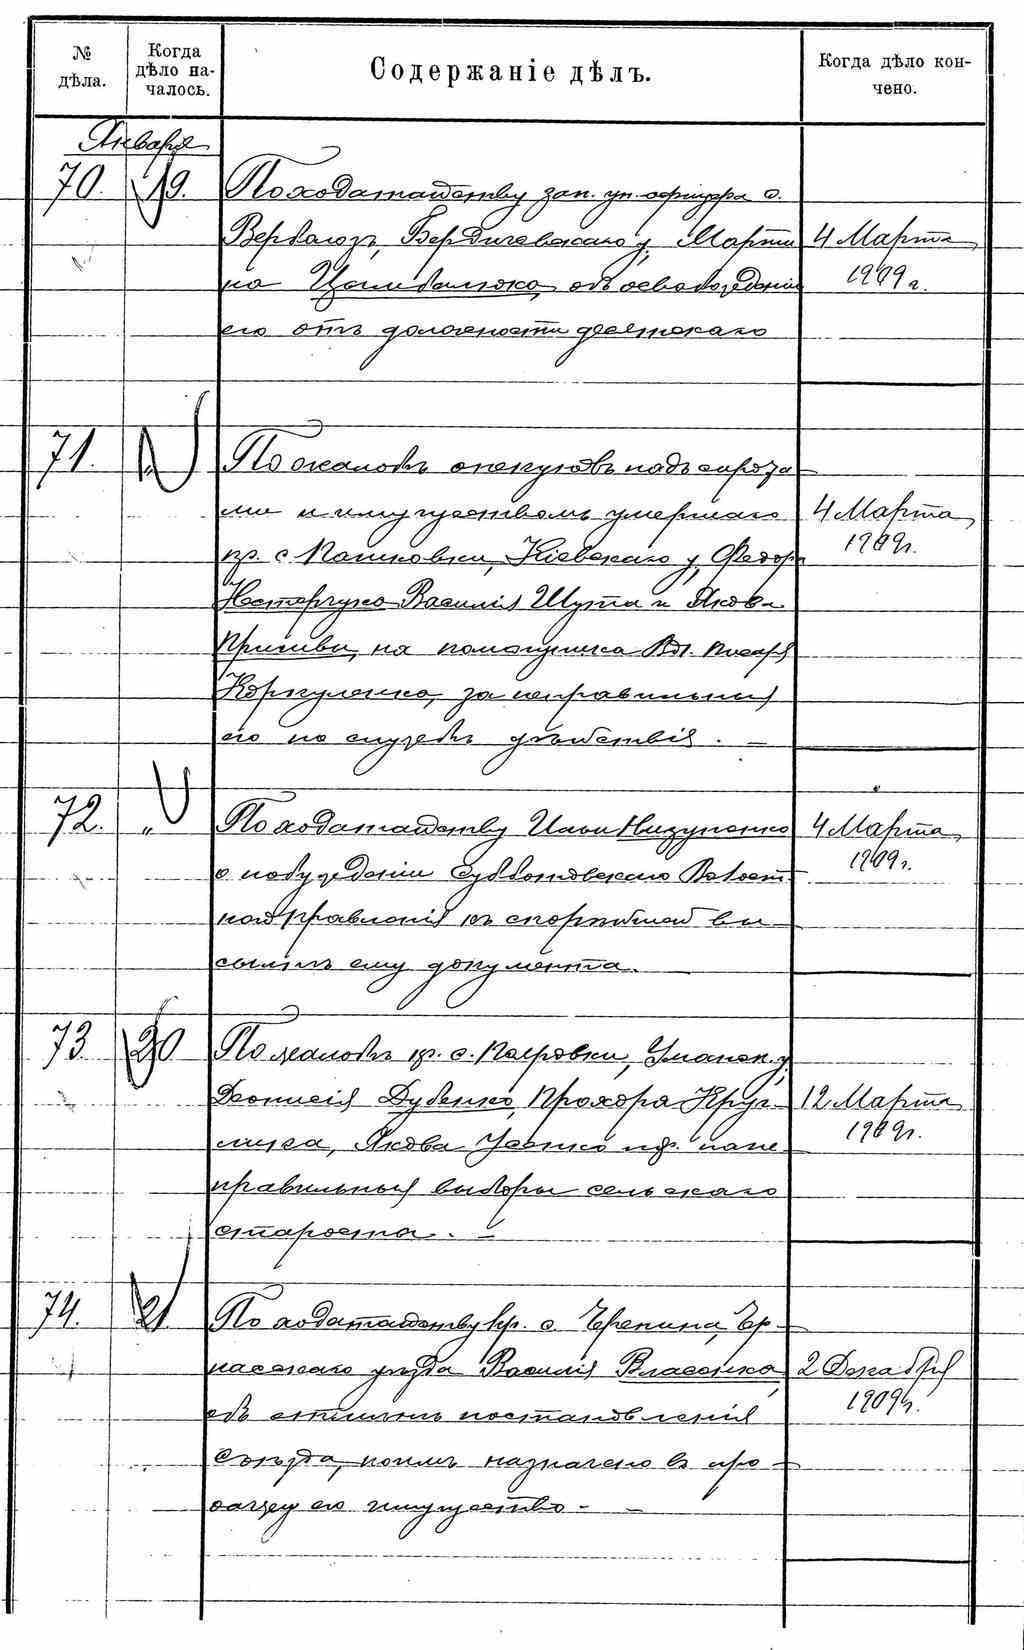 № дѣла.
Когда дѣло началось.
Содержаніе дѣлъ.
Когда дѣло кончено.
Января
70. 19. По ходатайству зап. ун. офицера с.
Вербагоз, Бердичевскаго у, Марти 4 Марта
на Цимбалюка, объ освобожденіи 1909 г.
его отъ должности десятскаго
71. " По жалобѣ опекуновъ надъ сирота
ми и имуществомъ умершаго 4 Марта
кр. с. Пашковки, Кіевскаго у, Федора 1909 г.
Нестерчука Василія Шута и Якова
на помощника Вол. писаря
за неправильныя
его по службѣ дѣйствія. —
72. " По ходатайству Ильи 4 Марта
о побужденіи Субботовскаго Волост 1909 г.
ного Правленія къ скорѣйшей вы
сылкѣ ему документа.
73 20 По жалобѣ кр. с. Петровки, Уманск. у. 
Діонисія Дубенко, Прохора Круг 12 Марта
лика, Якова Усенко и др. на не 1909 г.
правильныя выборы сельскаго
старосты. —
74. 21 По ходатайству кр. с. Черепина, Чер
касскаго уѣзда Василія Власенка, 2 Декабря
объ отмѣнѣ постановленія 1909 г.
Съѣзда, коимъ назначено въ про
дажу его имущество —